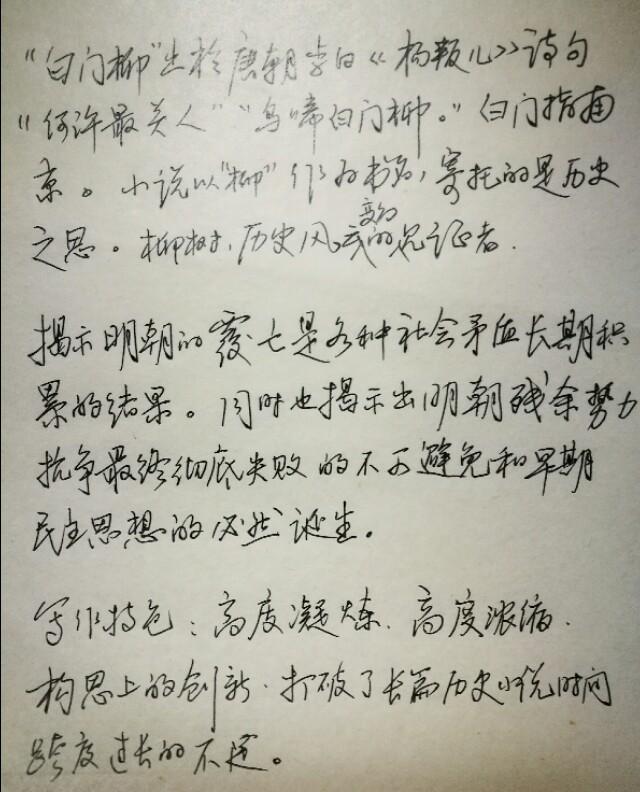 “白门柳”出于唐朝李白《杨叛儿》诗句
“何许最关人”“乌啼白门柳。”白门指南
京。小说以“柳”作为书名，寄托的是历史
之思。柳树，历史风云变幻的见证者．
揭示明朝的覆亡是各种社会矛盾长期积
累的结果。同时也揭示出明朝残余势力
抗争最终彻底失败的不可避免和早期
民主思想的必然诞生。
写作特色：高度凝炼．高度浓缩．
构思上的创新．打破了长篇历史小说时间
跨度过长的不足。